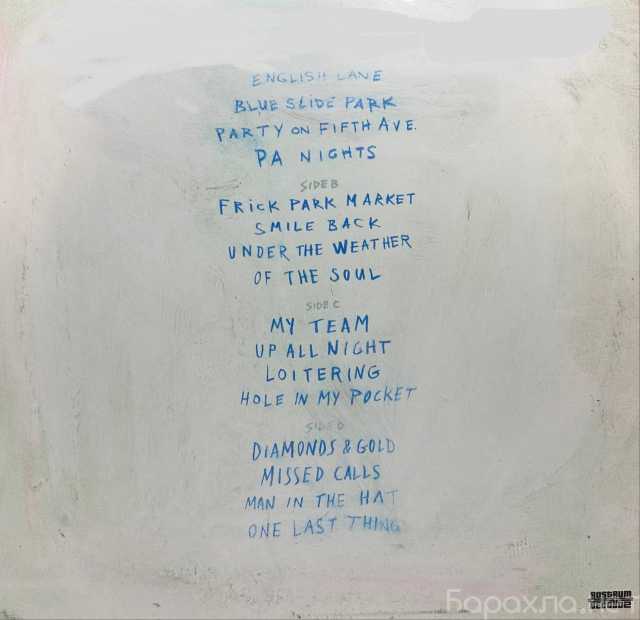 ENGLISH LANE
BLUE SLIDE PARK
PARTY ON FIFTH AVE.
PA NIGHTS
SIDE B
FRICK PARK MARKET
SMILE BACK
UNDER THE WEATHER
OF THE SOUL
SIDE C
MY TEAM
UP ALL NIGHT
LOITERING
HOLE IN MY POCKET
SIDE D
DIAMONDS & GOLD
MISSED CALLS
MAN IN THE HAT
ONE LAST THING
ROSTRUM
RECORDS
Барахла.нет